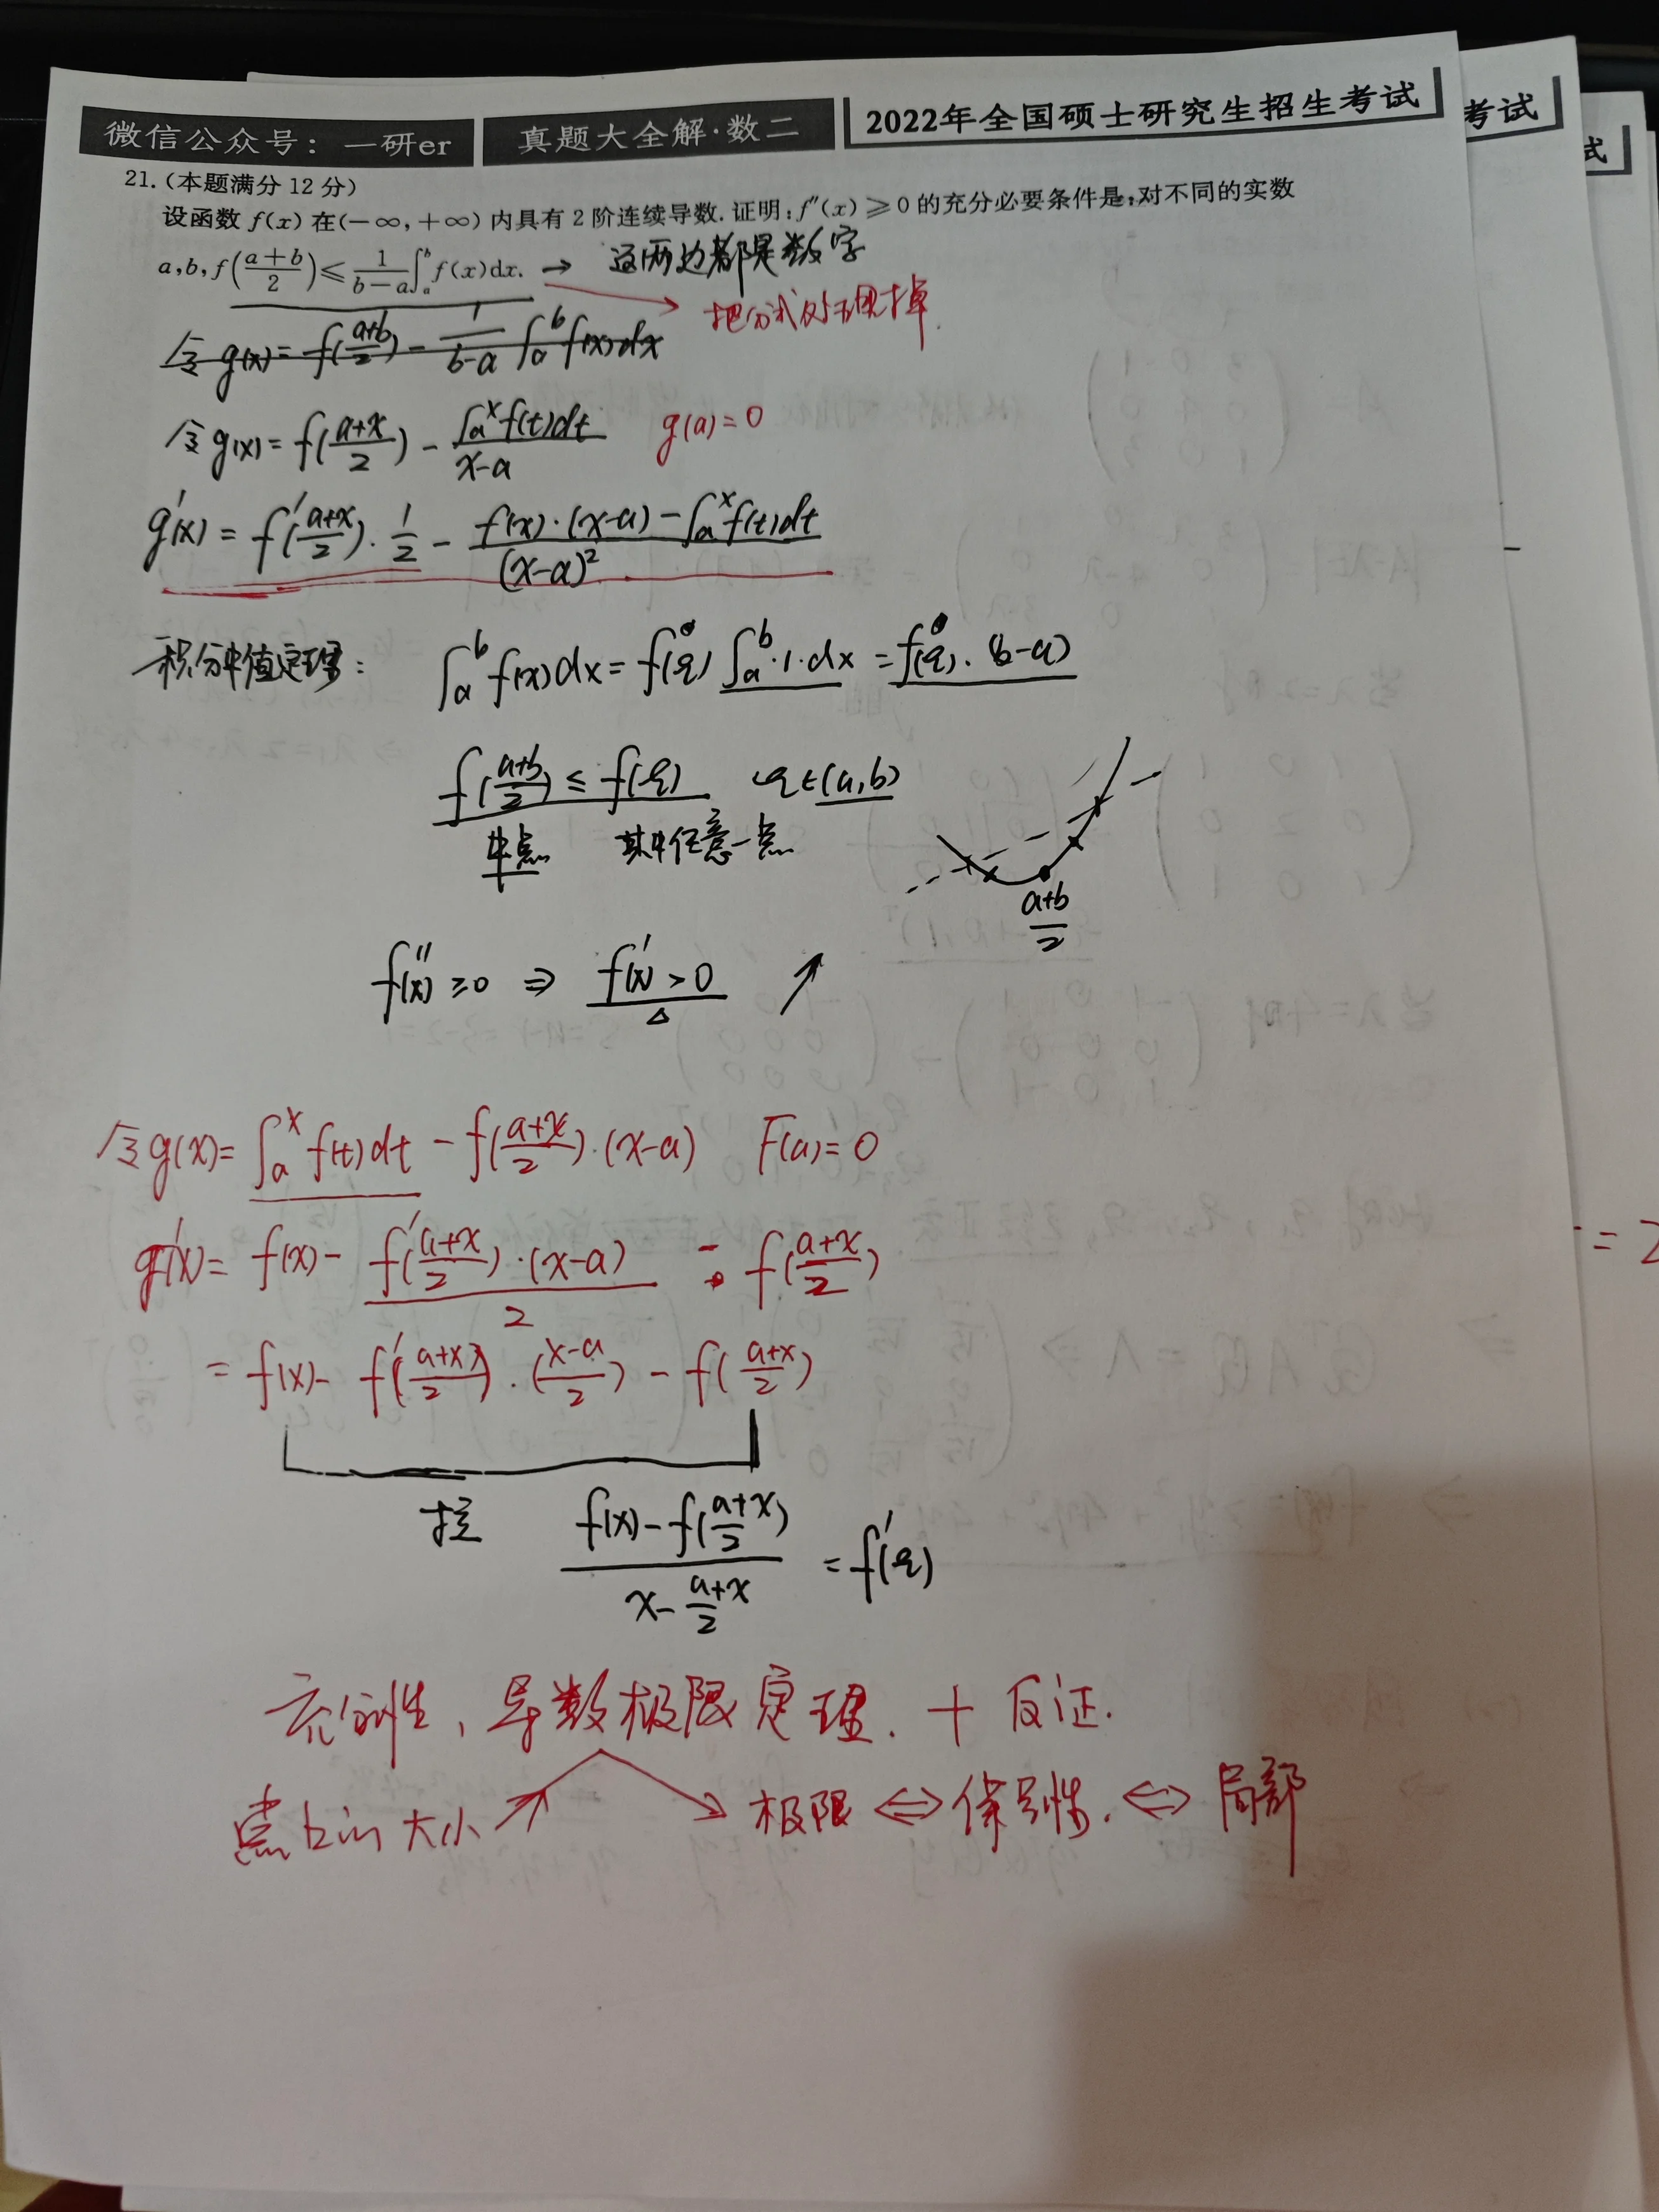 微信公众号：一研er 真题大全解·数二 2022年全国硕士研究生招生考试
考试
式
21.(本题满分 12 分)
设函数 f(x) 在(-∞,+∞) 内具有 2 阶连续导数.证明:f″(x)≥0 的充分必要条件是:对不同的实数
a,b,f((a+b)/2)≤1/(b-a)∫_a^b f(x)dx. → 这两边都是数字
把分式处理掉.
令 g(x)= f((a+b)/2) - 1/(b-a) ∫_a^b f(x)dx
令 g(x)= f((a+x)/2) - ∫_a^x f(t)dt/(x-a) g(a)=0
g'(x) = f'((a+x)/2)·1/2 - (f(x)·(x-a)-∫_a^x f(t)dt)/(x-a)²
积分中值定理: ∫_a^b f(x)dx = f(ξ) ∫_a^b·1·dx = f(ξ)·(b-a)
f((a+b)/2) ≤ f(ξ) ξ∈(a,b)
中点 其中任意一点
(a+b)/2
f''(x) ≥0 ⇒ f'(x) >0 ↗
△
令g(x)= ∫_a^x f(t)dt - f((a+x)/2)·(x-a) F(a)=0
g'(x)= f(x)- f'((a+x)/2)·(x-a)/2 - f((a+x)/2)
= 2
= f(x)- f'((a+x)/2)·((x-a)/2) - f((a+x)/2)
拉 (f(x)-f((a+x)/2))/(x-(a+x)/2) = f'(ξ)
充分性, 导数极限定理. + 反证.
点 大小 极限 ⇔ 保号性. ⇔ 局部